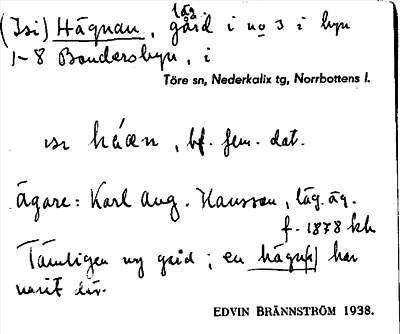 (Isi) Hägnan, läg. gård i no 3 i byn
1-8 Bondersbyn, i
Töre sn, Nederkalix tg, Norrbottens l.
ısı hǻæn, bf. fem. dat.
ägare: Karl Aug. Hansson, läg. äg.
f. 1878 kkh
Tämligen ny gård; en hägn[] har
varit där.
EDVIN BRÄNNSTRÖM 1938.